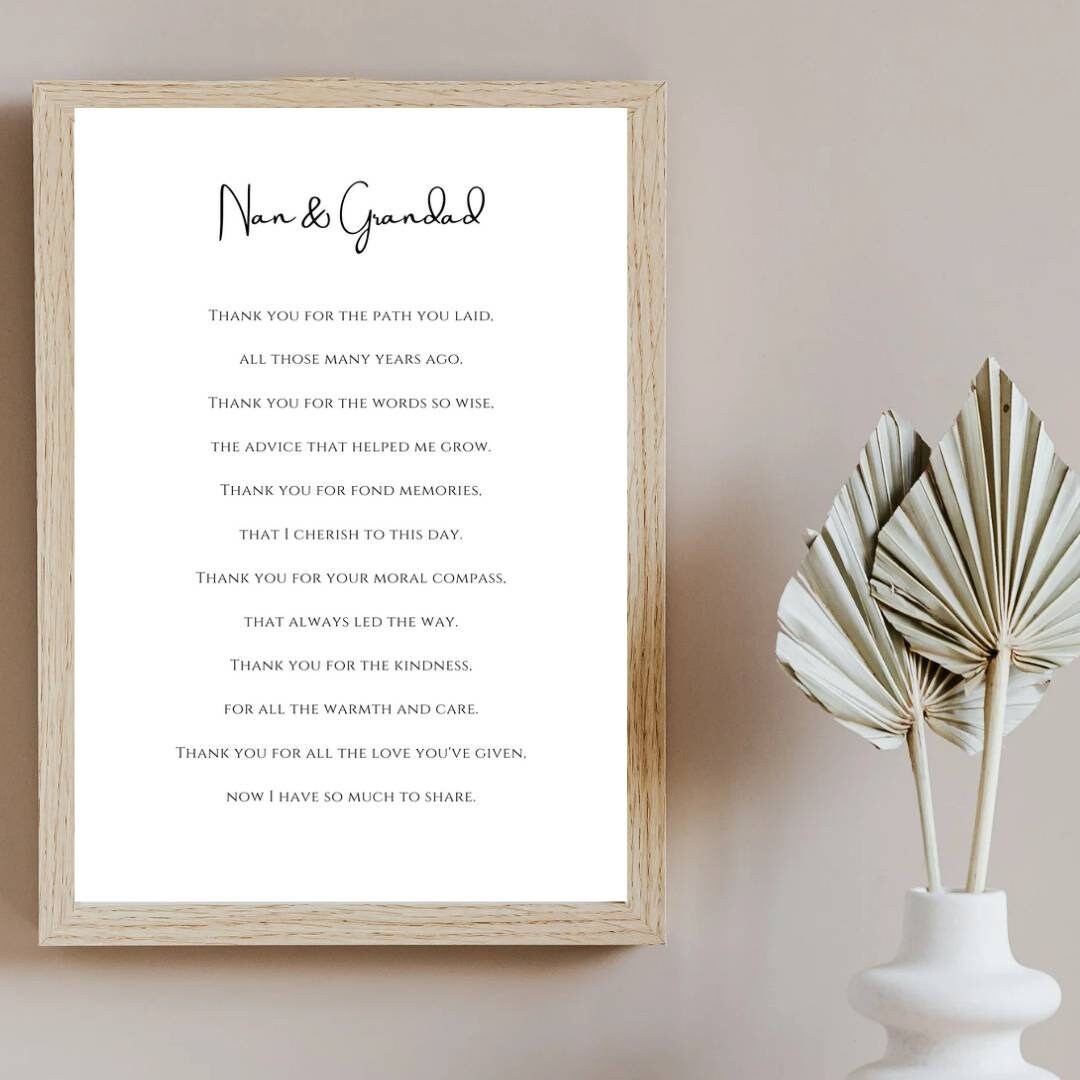 Nan & Grandad
Thank you for the path you laid,
all those many years ago.
Thank you for the words so wise,
the advice that helped me grow.
Thank you for fond memories,
that I cherish to this day.
Thank you for your moral compass,
that always led the way.
Thank you for the kindness,
for all the warmth and care.
Thank you for all the love you've given,
now I have so much to share.